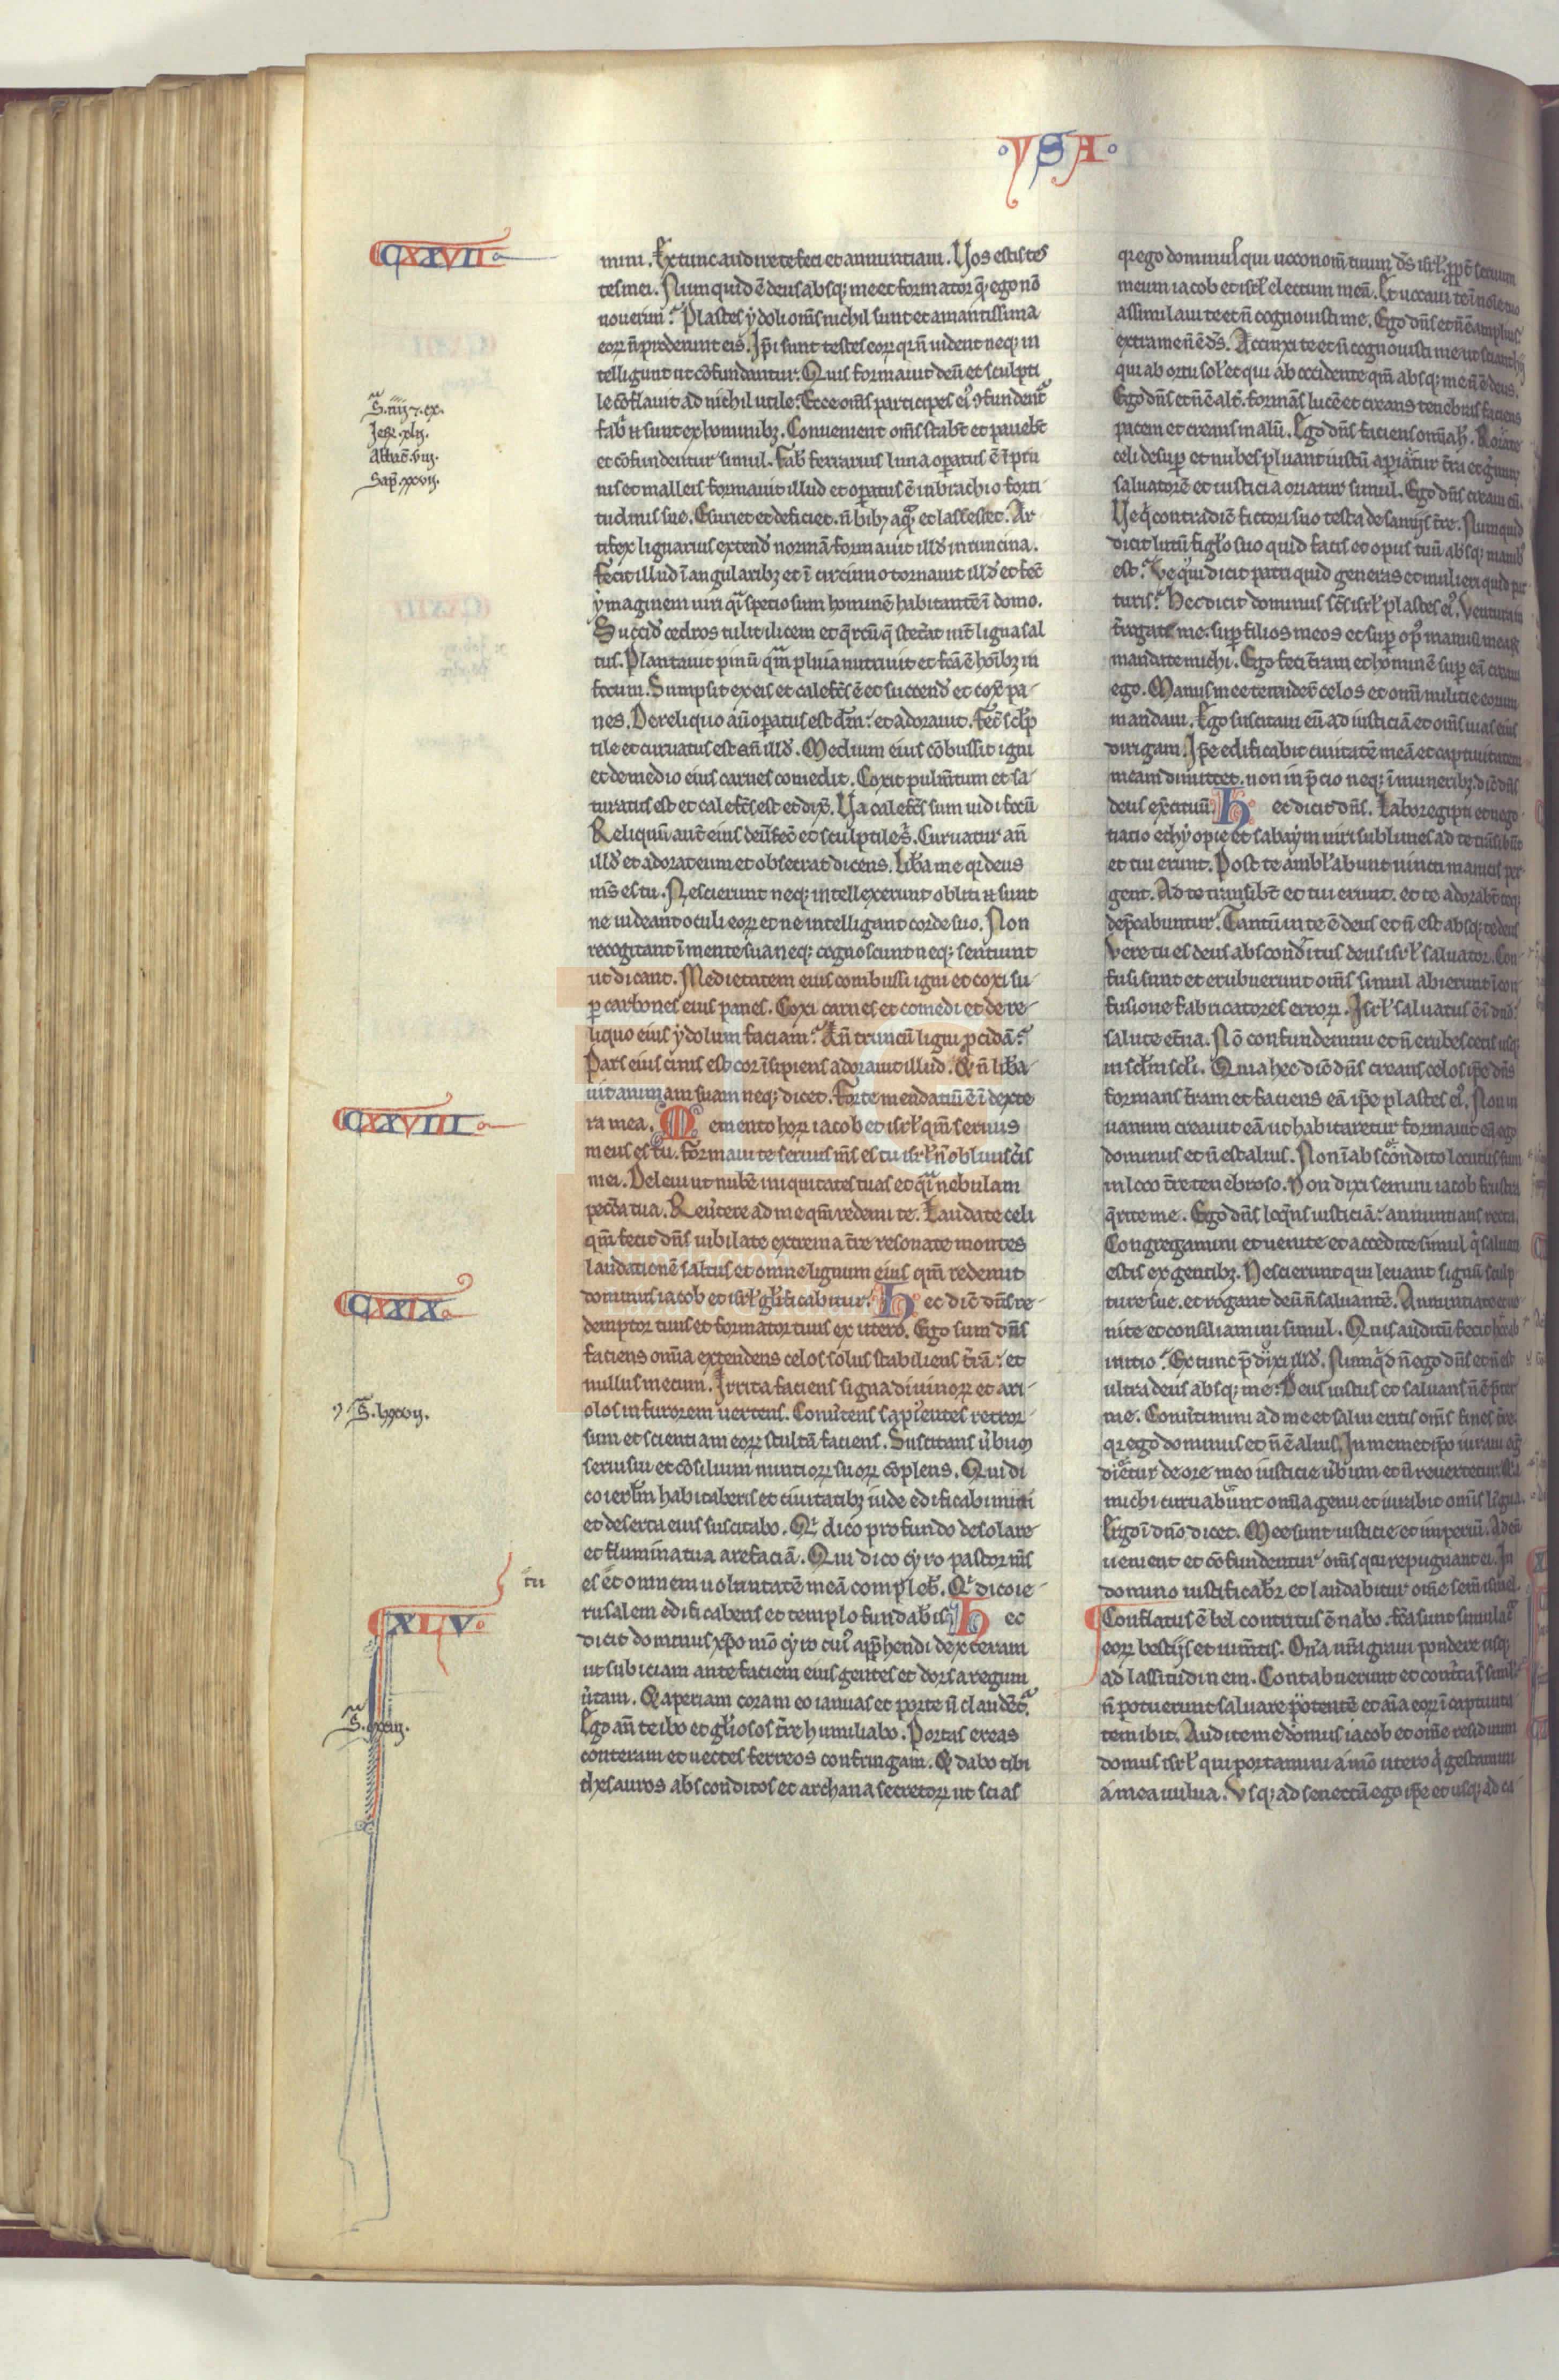 YSA
CXXVII
mini. Ex tunc audire te feci et annuntiaui. Uos estis tes
tes mei. Numquid ē deus absq; me et formator q̄; ego nō
nouerim? Plastes ẏdoli om̄s nichil sunt et amantissima
eoꝝ ñ proderunt eis. Ip̄i sunt testes eoꝝ qꝛ ñ uident neq; in
telligunt ut cōfundantur. Quis formauit deū et sculpti
le cōflauit ad nichil utile? Ecce om̄s participes ei᾽ ꝯfundent᷑
S. iiij. 7. ex.
Iere. xlij.
Sap. xxvij.
fab̓ .n. sunt ex hominibꝫ. Conuenient om̄s stabt̄ et pauebt̄
et cōfundentur simul. Fab̓ ferrarius lima op̄atus ē ī pru
nis et malleis formauit illud et op̄atus ē in brachio forti
tudinis sue. Esuriet et deficiet. ñ bibꝫ aq̄ᵃ et lassescet. Ar
tifex lignarius extend̄ normā formauit illd̄ in runcina.
fecit illud ī angularibꝫ et ī circinno tornauit illd̄ et fec̄
ẏmaginem uiri qᵃsi speciosum hominē habitantē ī domo.
Succid̄ cedros tulit ilicem et q̄rcū q̄ stet̓at int̓ ligna sal
tus. Plantauit pinū qᵃm pluuia nutriuit et fc̄a ē hoībꝫ in
focum. Sumpsit ex eis et calefc̄s ē et succend̄ et coxͭ pa-
nes. De reliquo aū op̄atus est dm̄: et adorauit. Fec̄ sclp̄
tile et curuatus est añ illd̄. Medium eius cōbussit igni
et de medio eius carnes comedit. Coxit pulm̄tum et sa-
turatus est et calefc̄s est et dix̄. Ua calefc̄s sum uidi focū
Reliquū aut̄ eius deū fec̄ et sculptile s᷑. Curuatur añ
illd̄ et adorat eum et obsecrat dicens. Lib̓a me qꝛ deus
m̄s es tu. Nescierunt neq; intellexerunt obliti .n. sunt
ne uideant oculi eoꝝ et ne intelligant corde suo. Non
recogitant ī mente sua neq; cognoscunt neq; sentiunt
ut dicant. Medietatem eius combussi igni et coxi su-
ꝑ carbones eius panes. Coxi carnes et comedi et de re-
liquo eius ẏdolum faciam? Añ truncū ligni ꝓcidā?
Pars eius cinis est cor īsipiens adorauit illud. Et ñ lib̓a-
uit animam suam neq; dicet. Forte mendatiū ē ī dexte
CXXVIII
ra mea. Memento hoꝝ iacob et isrl̓ qm̄ seruus
meus es tu. Formaui te seruus m̄s es tu isrl̓ ñ obliuisc̓is
mei. Deleui ut nubē iniquitates tuas et qᵃsi nebulam
pecc̄a tua. Reu̓tere ad me qm̄ redemi te. Laudate celi
qm̄ fecit dn̄s iubilate extrema t̓re resonate montes
laudationē saltus et omne lignum eius qm̄ redemit
CXXIX
dominus iacob et isrl̓ gl̓ificabitur. Hec dic̄ dn̄s re-
demptor tuus et formator tuus ex utero. Ego sum dn̄s
faciens om̄ia extendens celos solus stabiliens t̓rā: et
nullus mecum. Irrita faciens signa diuinoꝝ et ari-
S. lxxvij.
olos in furorem uertens. Conu̓tens sapientes retror
sum et scientiam eoꝝ stultā faciens. Suscitans u̓bum
serui sui et cōsilium nuntioꝝ suoꝝ cōplens. Qui di
co ierl̄m habitaberis et ciuitatibꝫ iude edificabimini
et deserta eius suscitabo. Qⁱ dico profundo desolare
et flumina tua arefaciā. Qui dico cẏro pastor m̄s
tu
es et omnem uoluntatē meā compleb̓. Qⁱ dico ie-
XLV
rusalem edificaberis et templo fundab̓is. Hec
dicit dominus xp̄o meō cẏro cui᾽ app̄hendi dexteram
ut subiciam ante faciem eius gentes et dorsa regum
u̓tam. Et aperiam coram eo ianuas et porte ñ claudēt᷑.
Ego añ te ibo et gl̓iosos t̓re humiliabo. Portas ereas
conteram et uectes ferreos confringam. Et dabo tibi
thesauros absconditos et archana secretoꝝ ut scias
qꝛ ego dominus qui uoco nom̄ tuum ds̄ isrl̓. ꝓpt̓ seruum
meum iacob et isrl̓ electum meū. Et uocaui te ī noīe tuo
assimilaui te et ñ cognouisti me. Ego dn̄s et ñ ē amplius
extra me ñ ē ds̄. Accinxi te et ñ cognouisti me ut sciant hij
qui ab ortu sol̓ et qui ab occidente qm̄ absq; me ñ ē deus.
Ego dn̄s et ñ ē alt̓. formās lucē et creans tenebras faciens
pacem et creans malū. Ego dn̄s faciens om̄ia h̓. Rorate
celi desuꝑ et nubes pluant iustū aꝑiatur t̓ra et g̓minet
saluatorē et iusticia oriatur simul. Ego dn̄s creaui eū.
Ue qⁱ contradic̄ fictori suo testa de samijs t̓re. Numquid
dicit lutū figl̓o suo quid facis et opus tuū absq; manibꝫ
est? Ve qui dicit patri quid generas et mulieri quid par
turis? Hec dicit dominus sc̄s isrl̓ plastes ei᾽. Ventura in
t̓rogate me. suꝑ filios meos et suꝑ op᾽ manuū meaꝝ
mandate michi. Ego feci t̓ram et hominē suꝑ eā creaui
ego. Manus mee tetender̄ celos et omī militie eorum
mandaui. Ego suscitaui eū ad iusticiā et om̄s uias eius
dirigam. Ip̄e edificabit ciuitatē meā et captiuitatem
meam dimittet. non in p̄cio neq; ī muneribꝫ dic̄ dn̄s
deus exc̓ituū. Hec dicit dn̄s. Labor egipti et nego-
tiacio ethẏopie et sabaẏm uiri sublimes ad te trāsibūt
et tui erunt. Post te ambl̓abunt uincti manicis per
gent. Ad te transibt̄ et tui erunt. et te adorabt̄ teq;
dep̄cabuntur. Tantū in te ē deus et ñ est absq; te deus
Vere tu es deus absconditus deus isrl̓ saluator. Con-
fusi sunt et erubuerunt om̄s simul abierunt ī con
fusione fabricatores erroꝝ. Isrl̓ saluatus ē ī dn̄o
salute et̓na. Nō confundemini et ñ erubescetis usq;
in sc̄lm sc̄li. Quia hec dic̄ dn̄s creans celos ip̄e dn̄s
formans t̓ram et faciens eā ip̄e plastes ei᾽. Non in
uanum creauit eā ut habitaretur formauit eā ego
dominus et ñ est alius. Non ī abscondito locutus sum
in loco t̓re tenebroso. Non dixi semini iacob frustra
q̄rite me. Ego dn̄s loq̄ns iusticiā: annuntians recta.
Congregamini et uenite et accedite simul qⁱ saluati
estis ex gentibꝫ. Nescierunt qui leuant signū sculp
ture sue. et rogant deū ñ saluantē. Annuntiate et ue-
nite et consiliamini simul. Quis auditū fecit h̓ ab
initio? Ex tunc p̄dixi illd̄. Numqⁱd ñ ego dn̄s et ñ est
ultra deus absq; me? Deus iustus et saluans ñ ē p̄ter
me. Conu̓timini ad me et salui eritis om̄s fines t̓re.
qꝛ ego dominus et ñ ē alius. In memetip̄o iuraui
dietur de ore meo iusticie u̓bum et ñ reuertetur. Qⁱa
michi curuabunt᷑ om̄ia genu et iurabit om̄is līgua.
Ergo ī dn̄o dicet. Mee sunt iusticie et imperiū. Ad eū
uenient et cōfundentur om̄s qui repugnant ei. In
domino iustificabr̄ et laudabitur om̄e sem̄ israel.
Conflatus ē bel contritus ē nabo. fc̄a sunt simulacᵃ
eoꝝ bestijs et ium̄tis. On̓a ur̄a graui pondere usq;
ad lassitudinem. Contabuerunt et cont̓ta s̄t simul
ñ potuerunt saluare portantē et aīa eoꝝ ī captiuita
tem ibit. Audite me domus iacob et om̄e residuum
domus isrl̓ qui portamini a meō utero qⁱ gestamini
a mea uulua. Vsq; ad senectā ego ip̄e et usq; ad ca